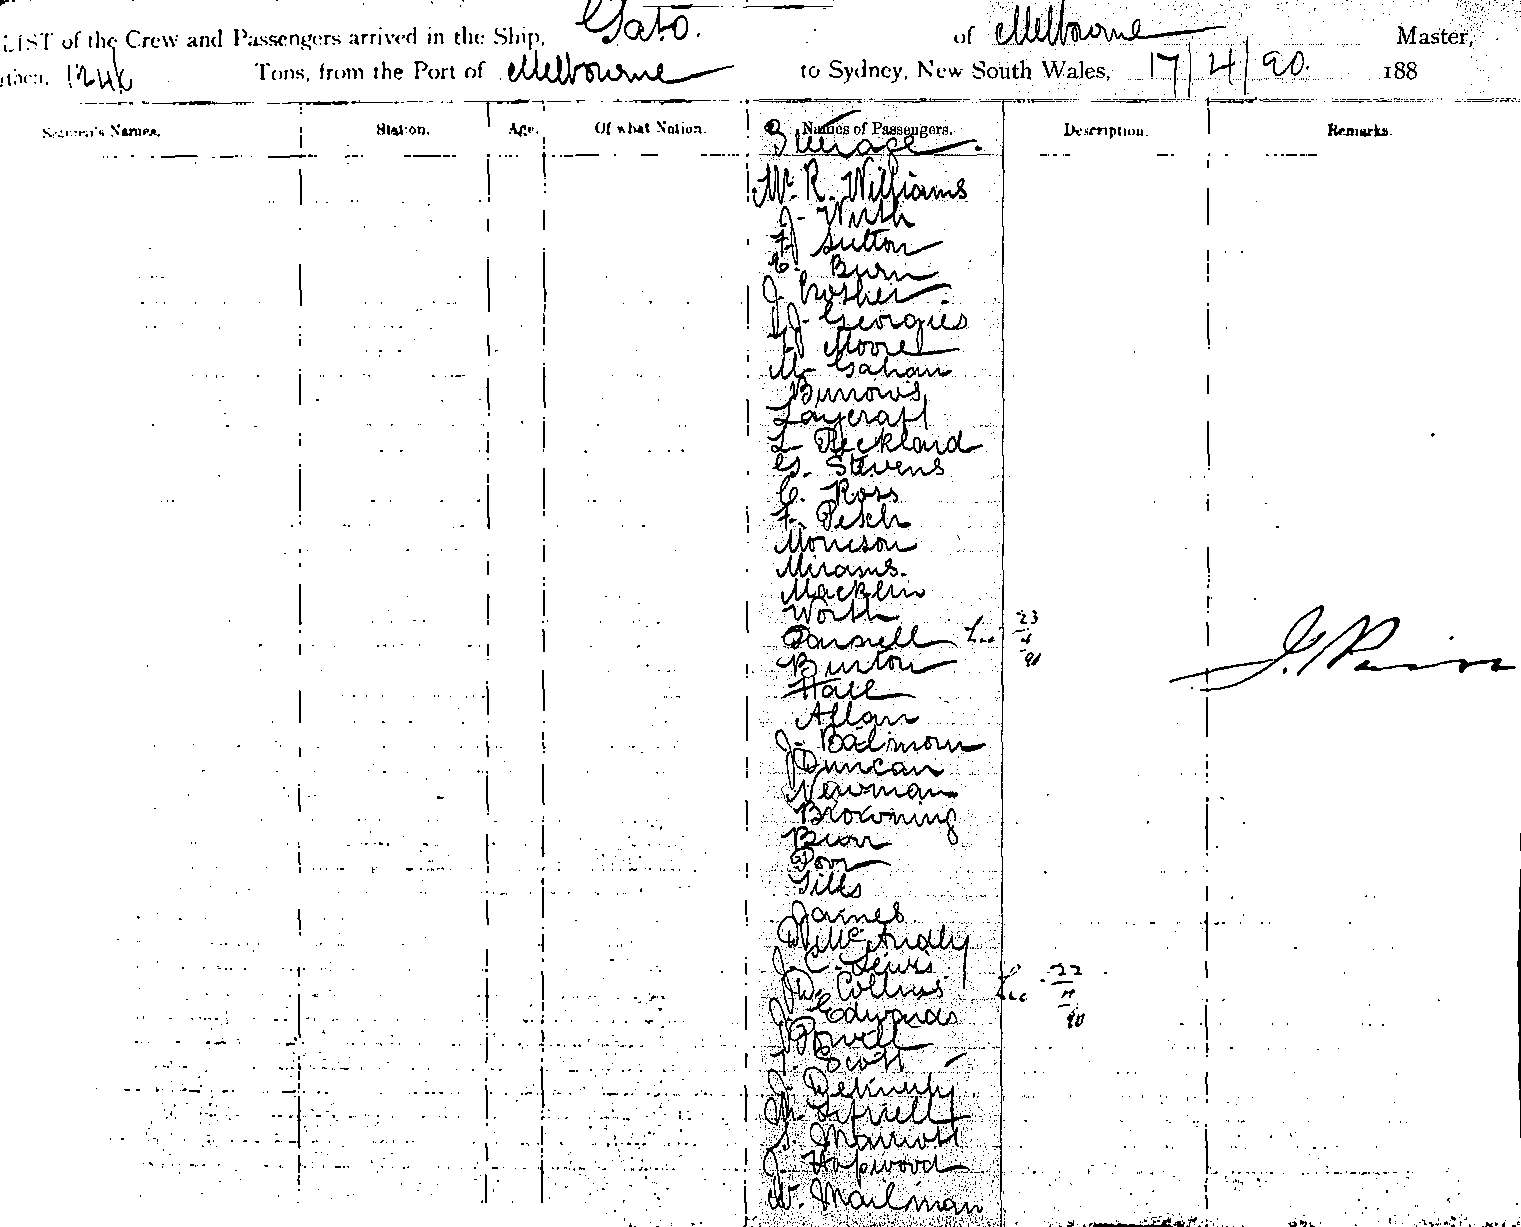 LIST of the Crew and Passengers arrived in the Ship, Gabo. of Melbourne Master,
then, 1246 Tons, from the Port of Melbourne to Sydney, New South Wales, 17/4/90. 188
Seamen's Names. Station. Age. Of what Nation. Names of Passengers. Description. Remarks.
Steerage.
Mr. R. Williams
J. Wirth
F. Sutton
E. Burn
J. Crosher
J. Georgies
F. Moore
M. Gahan
Burrows
Laycraft
L. Peckland
G. Stevens
C. Ross
F. Pesch
Morrison
Mirams.
Macklin
Worth
23
4
90
Burton
Hall
Allan
J. Balmour
Duncan
Newman
Browning
Burr
Poor
Gills
James
McAndly
J. C. Lewis
22
4
90
D. Collins
J. Edwards
Powell
T. Scott
S. Marriott
J. Hapwood
W. Mailman